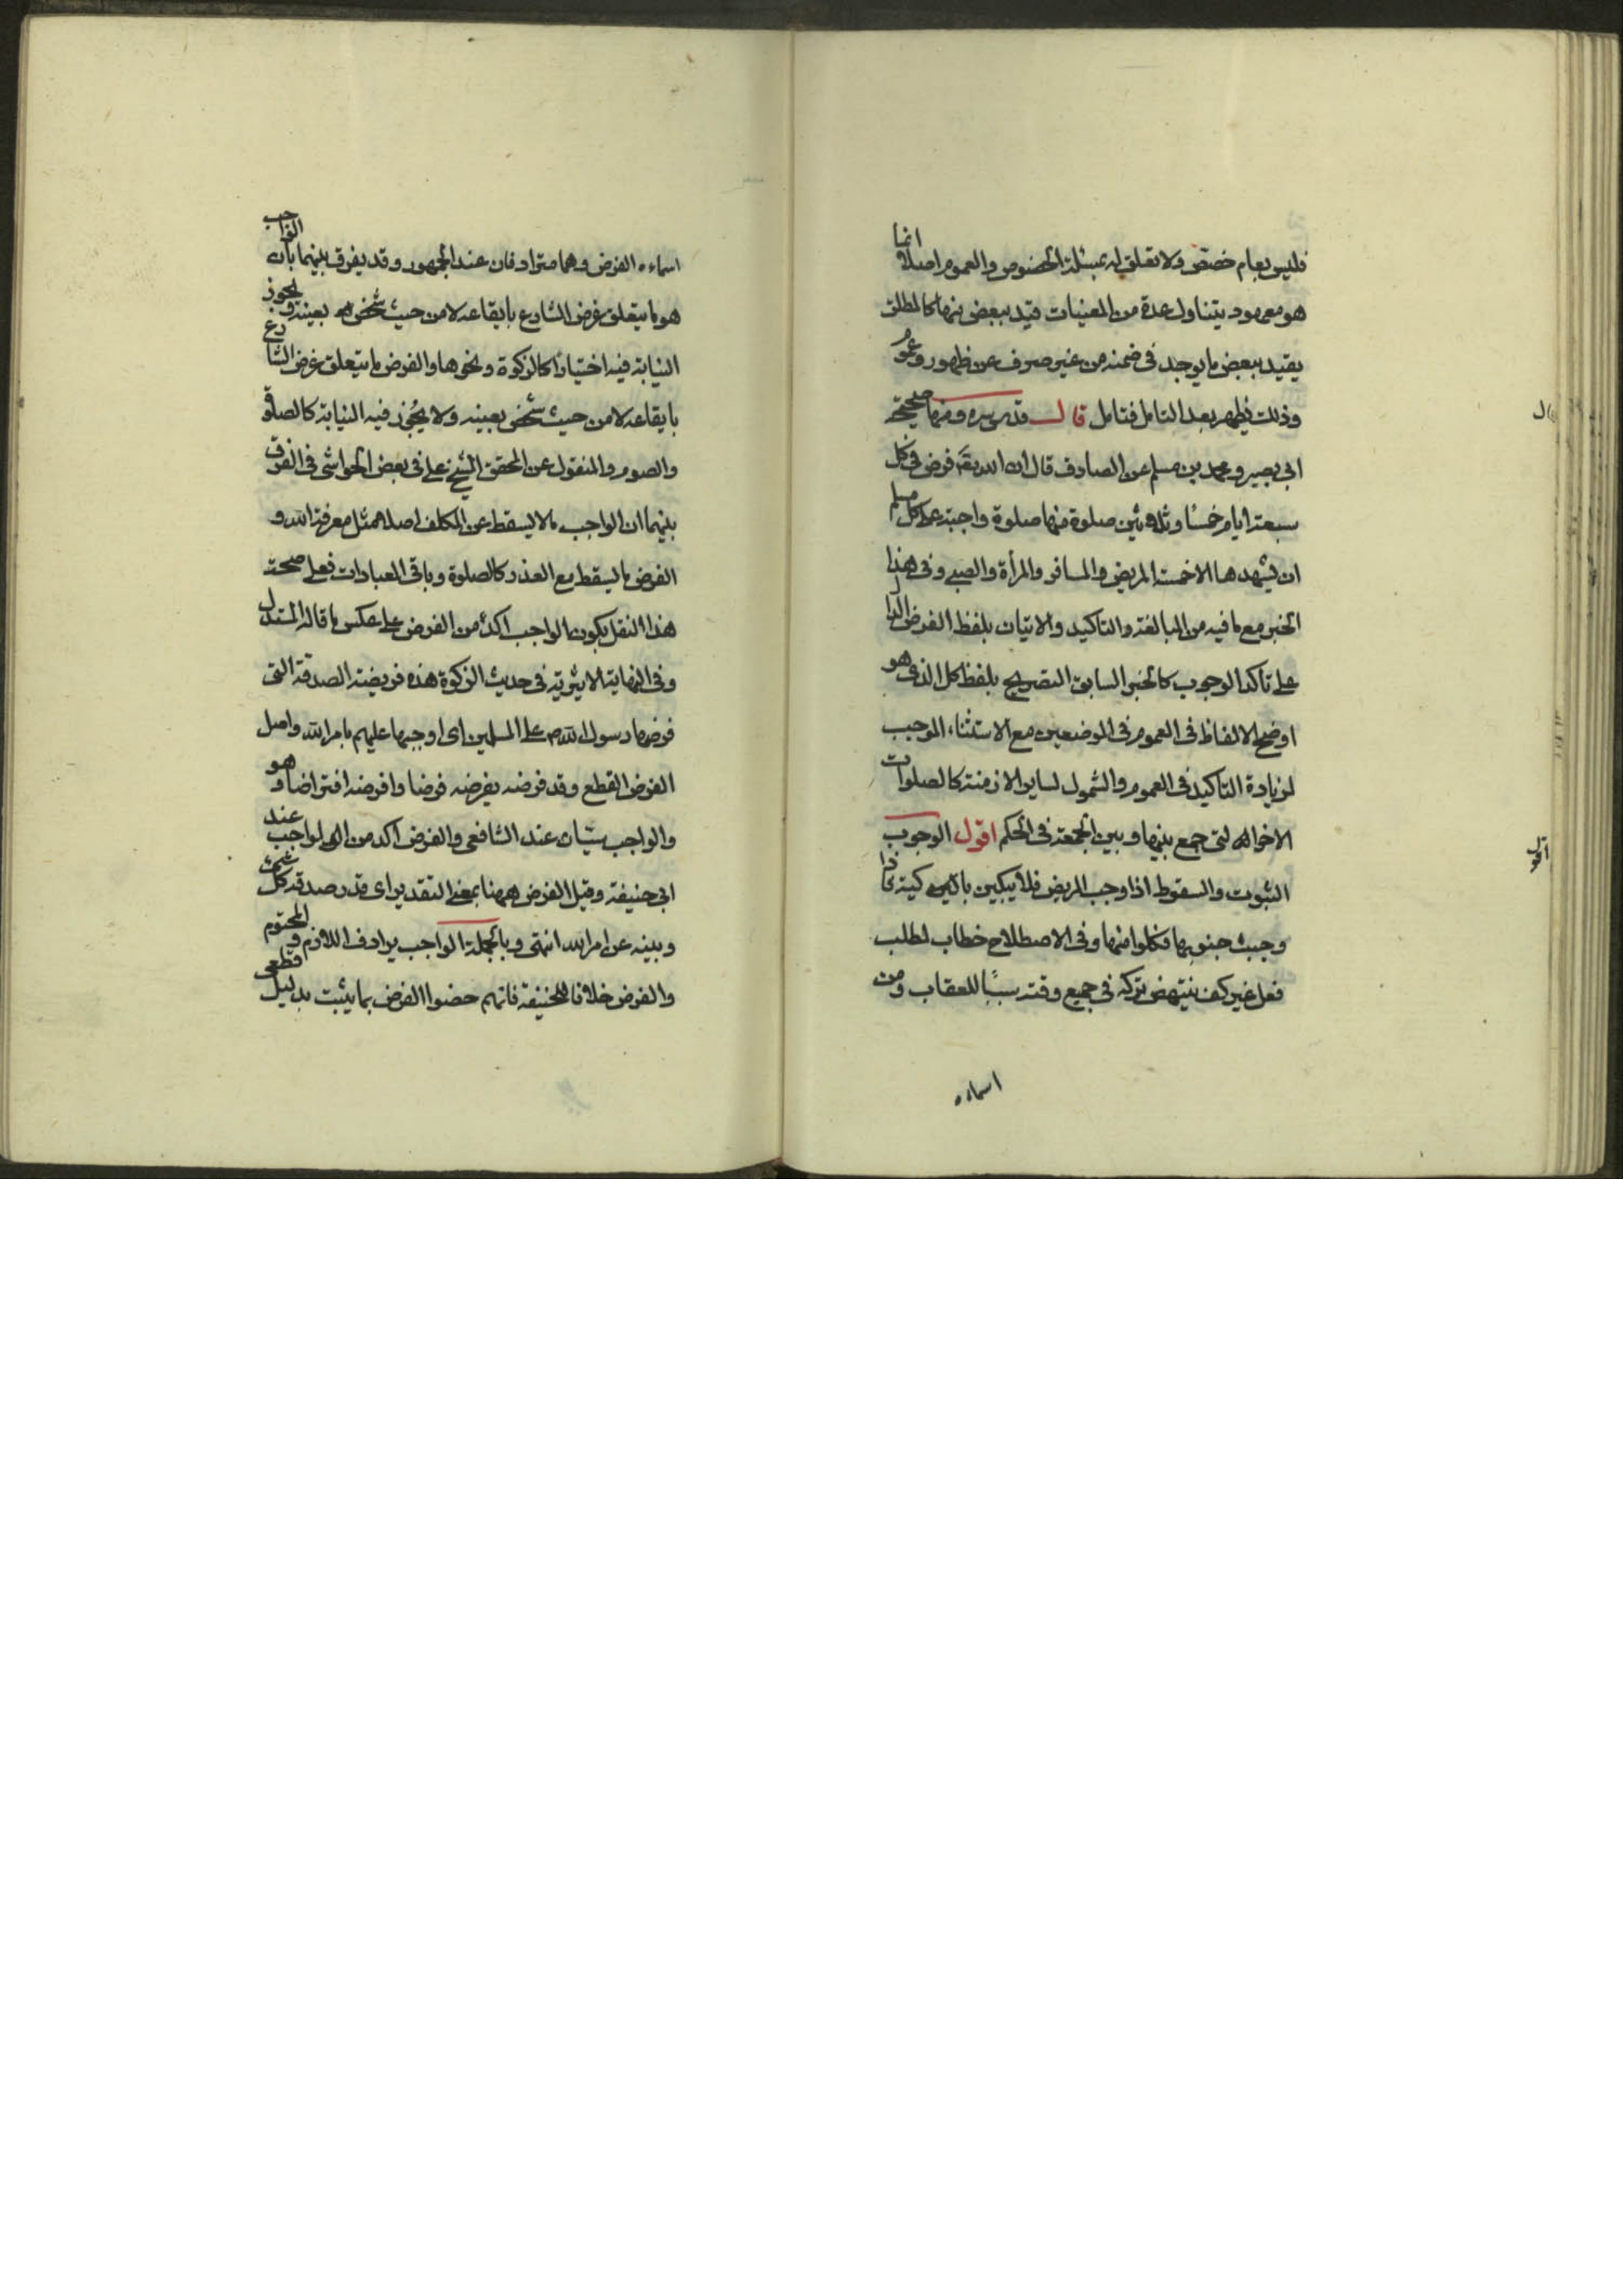 فليس بعام خصص ولا تعلق له بمسئلة الخصوص والعموم اصلا انما
هو معهود يتناول عدة من المعينات قيد ببعض منها كالمطلق
يقيد ببعض ما يوجد في ضمنه من غير صرف عن ظهور وعمو
وذلك يظهر بعد التامل فتامل قال قدس سره ومنها صحيحة
ابي بصير ومحمد بن مسلم عن الصادق قال ان الله تعالى فرض في كل
سبعة ايام خمسا وثلثين صلوة منها صلوة واجبة على كل مسلم
ان يشهدها الا خمسة المريض والمسافر والمرأة والصبي وفي هذا
الخبر مع ما فيه من المبالغة والتاكيد والاتيان بلفظ الفرض الدال
على تاكد الوجوب كالخبر السابق التصريح بلفظ كل الذي هو
اوضح الالفاظ في العموم في الموضعين مع الاستثناء الموجب
لزيادة التاكيد في العموم والشمول لساير الازمنة كالصلوات
الاخر التي جمع بينها وبين الجمعة في الحكم اقول الوجوب
الثبوت والسقوط اذا وجب المريض فلا يبكين باكية فاذا
وجبت جنوبها فكلوا منها وفي الاصطلاح خطاب لطلب
فعل غير كف ينتهض تركه في جميع وقته سببا للعقاب ومن
اسماءه
قال
اقول
اسماءه الفرض وهما مترادفان عند الجمهور وقد يفرق بينهما بان الواجب
هو ما يتعلق غرض الشارع بايقاعه لا من حيث شخص بعينه ويجوز
النيابة فيه اختيارا كالزكوة ونحوها والفرض ما يتعلق غرض الشارع
بايقاعه لا من حيث شخص بعينه ولا يجوز فيه النيابة كالصلوة
والصوم والمنقول عن المحقق الشيخ علي في بعض الحواشي في الفرق
بينهما ان الواجب ما لا يسقط عن المكلف اصلا مثل معرفة الله و
الفرض ما يسقط مع العذر كالصلوة وباقي العبادات فعلى صحة
هذا النقل يكون الواجب اكد من الفرض على عكس ما قاله المستدل
وفي النهاية الاثيرية في حديث الزكوة هذه فريضة الصدقة التي
فرضها رسول الله ص على المسلمين اى اوجبها عليهم بامر الله واصل
الفرض القطع وقد فرضه يفرضه فرضا وافرضه افتراضا وهو
والواجب سيان عند الشافعي والفرض اكد من الواجب عند
ابي حنيفة وقيل الفرض ههنا بمعنى التقدير اى قدر صدقة كل شئ
وبينه عن امر الله انتهى وبالجملة الواجب يرادف اللازم والمحتوم
والفرض خلافا للحنيفة فانهم خصوا الفرض بما يثبت بدليل قطعي